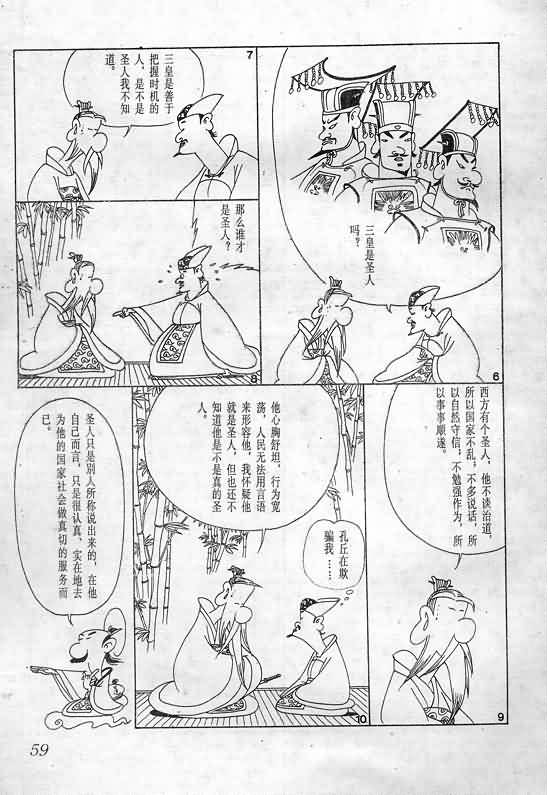 三皇是圣人
吗？
6
三皇是善于
把握时机的
人，是不是
圣人我不知
道。
7
那么谁才
是圣人？
8
西方有个圣人，他不谈治道，
所以国家不乱，不多说话，所
以自然守信，不勉强作为，所
以事事顺遂。
9
他心胸舒坦，行为宽
荡，人民无法用言语
来形容他，我怀疑他
就是圣人，但也还不
知道他是不是真的圣
人。
孔丘在欺
骗我……
10
圣人只是别人所称说出来的，在他
自己而言，只是很认真，实在地去
为他的国家社会做真切的服务而
已。
59